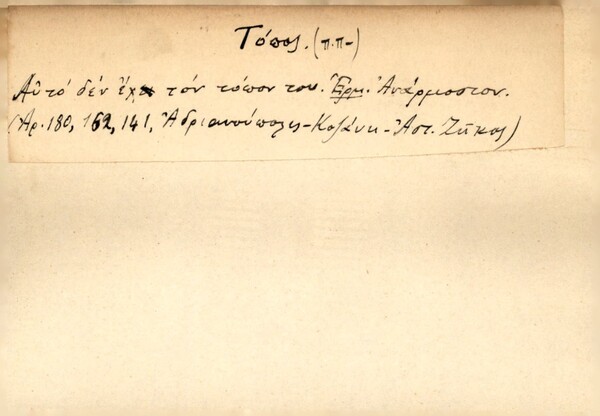 Τόπος. (π.π-)
Αὐτό δέν ἔχει τόν τόπον του. Ἑρμ. Ἀνάρμοστον.
(Ἀρ. 180, 162, 141, Ἀδριανούπολις-Κοζάνη-Ἀστ. Ζῆκος)